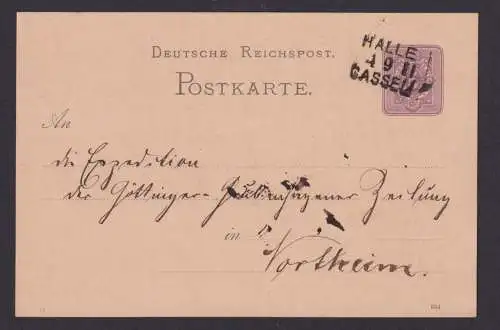 DEUTSCHE REICHSPOST.
HALLE
4 9 11
CASSEL
POSTKARTE.
An
die Expedition
der Göttinger-Grubenhagener Zeilung
in
Northeim.